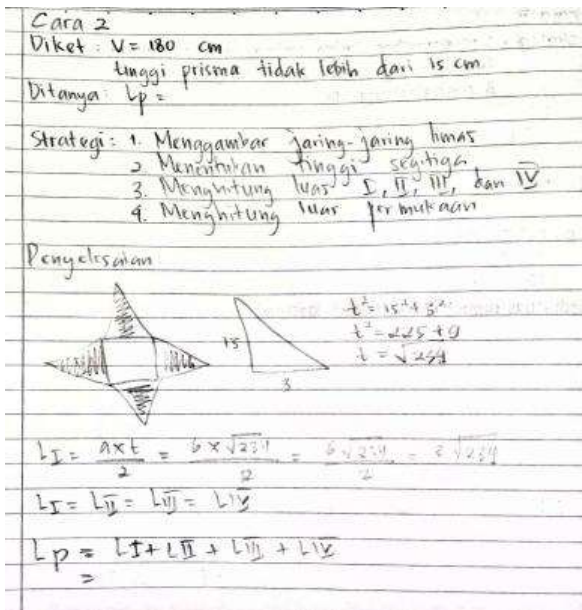 Cara 2
Diket : V = 180 cm
tinggi prisma tidak lebih dari 15 cm.
Ditanya : Lp =
Strategi : 1. Menggambar jaring-jaring limas
2. Menentukan tinggi segitiga
3. Menghitung luas I, II, III, dan IV.
4. Menghitung luas permukaan
Penyelesaian
15
3
t² = 15² + 3²
t² = 225 + 9
t = √234
LI = axt/2 = 6 x √234/2 = 6√234/2 = 3√234
LI = LII = LIII = LIV
Lp = LI + LII + LIII + LIV
=